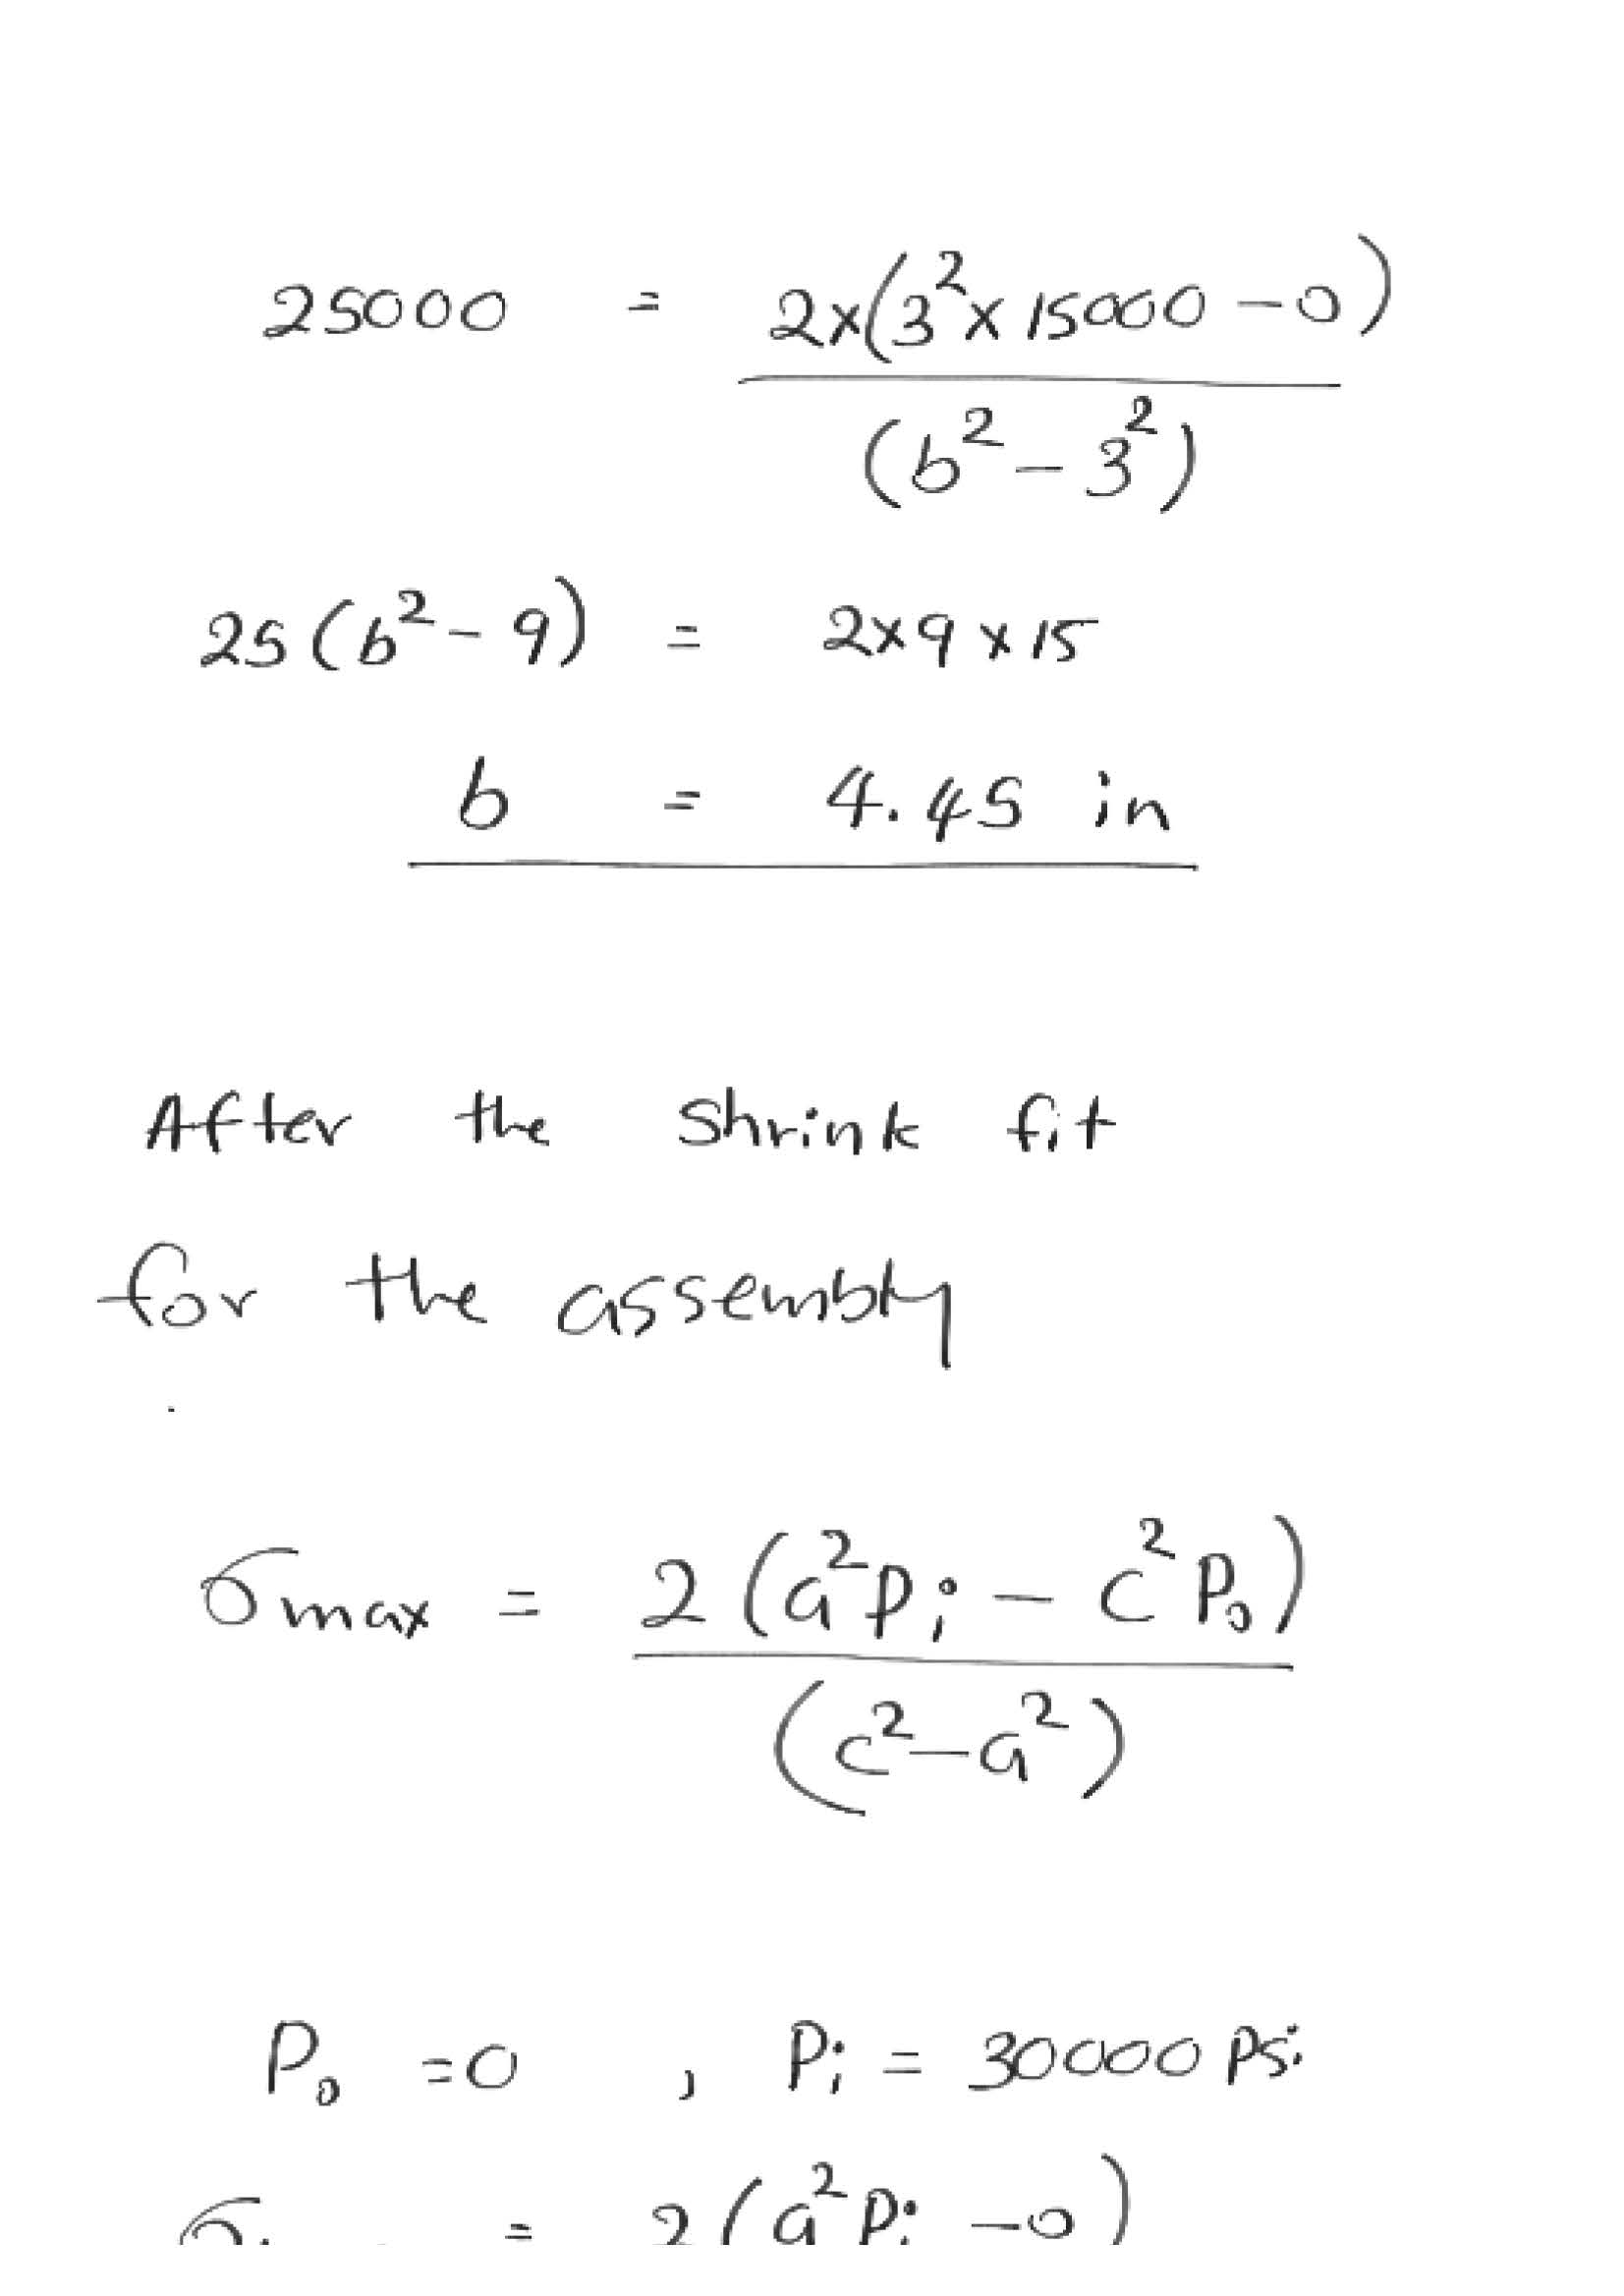 25000 = 2x(3²x 15000 - 0) / (b² - 3²)
25(b² - 9) = 2x9 x 15
b = 4.45 in
After the shrink fit
for the assembly
σmax = 2(a²Pi - c²Po) / (c² - a²)
Po = 0 , Pi = 30000 Psi
= 2(a²Pi - 0)